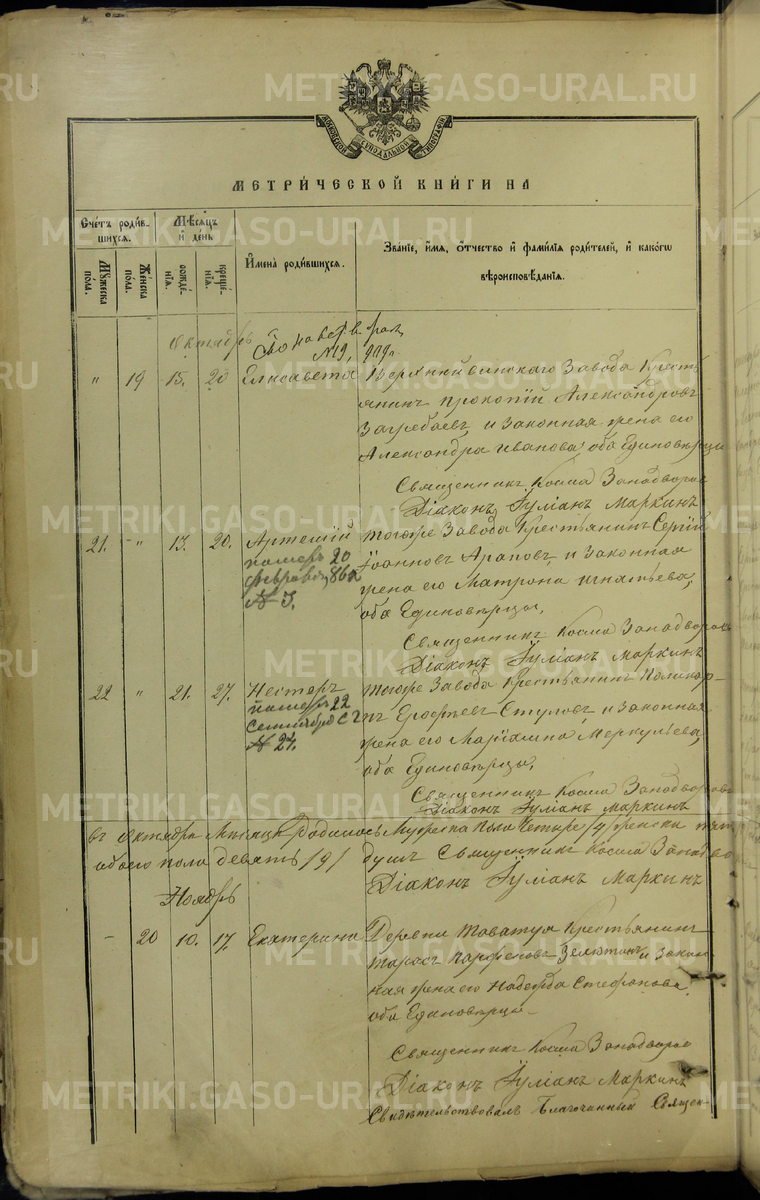 METRIKI.GASO-URAL.RU
МЕТРИЧЕСКОЙ КНИГИ НА
Счетъ родив-
шихся.
Мѣсяцъ
и день
Имена родившихся.
Званіе, имя, отчество и фамилія родителей, и какого
вѣроисповѣданія.
Мужеска
пола.
Женска
пола.
рожде-
нія.
креще-
нія.
Октябрь
№ 19,
„ 19 15. 20 Елисавета
Верхнейвинскаго Завода Кресть
янинъ Прокопій Александровъ
Загребаевъ, и Законная жена его
Александра Иванова, оба Единовѣрцы
Священникъ Косма Западворовъ
Діаконъ Іуліанъ Маркинъ
21. „ 13. 20. Артемій
померъ 20
февраля
№ 3.
тогоже Завода Крестьянинъ Сергій
Іоанновъ Араповъ, и Законная
жена его Матрона Игнатьева,
оба Единовѣрцы,
Священникъ Косма Западворовъ
Діаконъ Іуліанъ Маркинъ
22 „ 21. 27. Несторъ
померъ 22
Сентября
№ 24.
тогоже Завода Крестьянинъ Поликар-
пъ Ерофеевъ Стуловъ, и законная
жена его Маріамна Меркульева,
оба Единовѣрцы,
Священникъ Косма Западворовъ
Діаконъ Іуліанъ Маркинъ
въ Октябрѣ Мѣсяцѣ Родилось Мужеска пола четыре /4/ женска пять
обоего пола девять /9/ душъ Священникъ Косма
Діаконъ Іуліанъ Маркинъ
Ноябрь
- 20 10. 17. Екатерина
Деревни Таватуя Крестьянинъ
Тарасъ Парфеновъ и Закон-
ная жена его Надежда Стефанова,
оба Единовѣрцы
Священникъ Косма Западворовъ
Діаконъ Іуліанъ Маркинъ
Свидѣтельствовалъ Благочинный Священ-